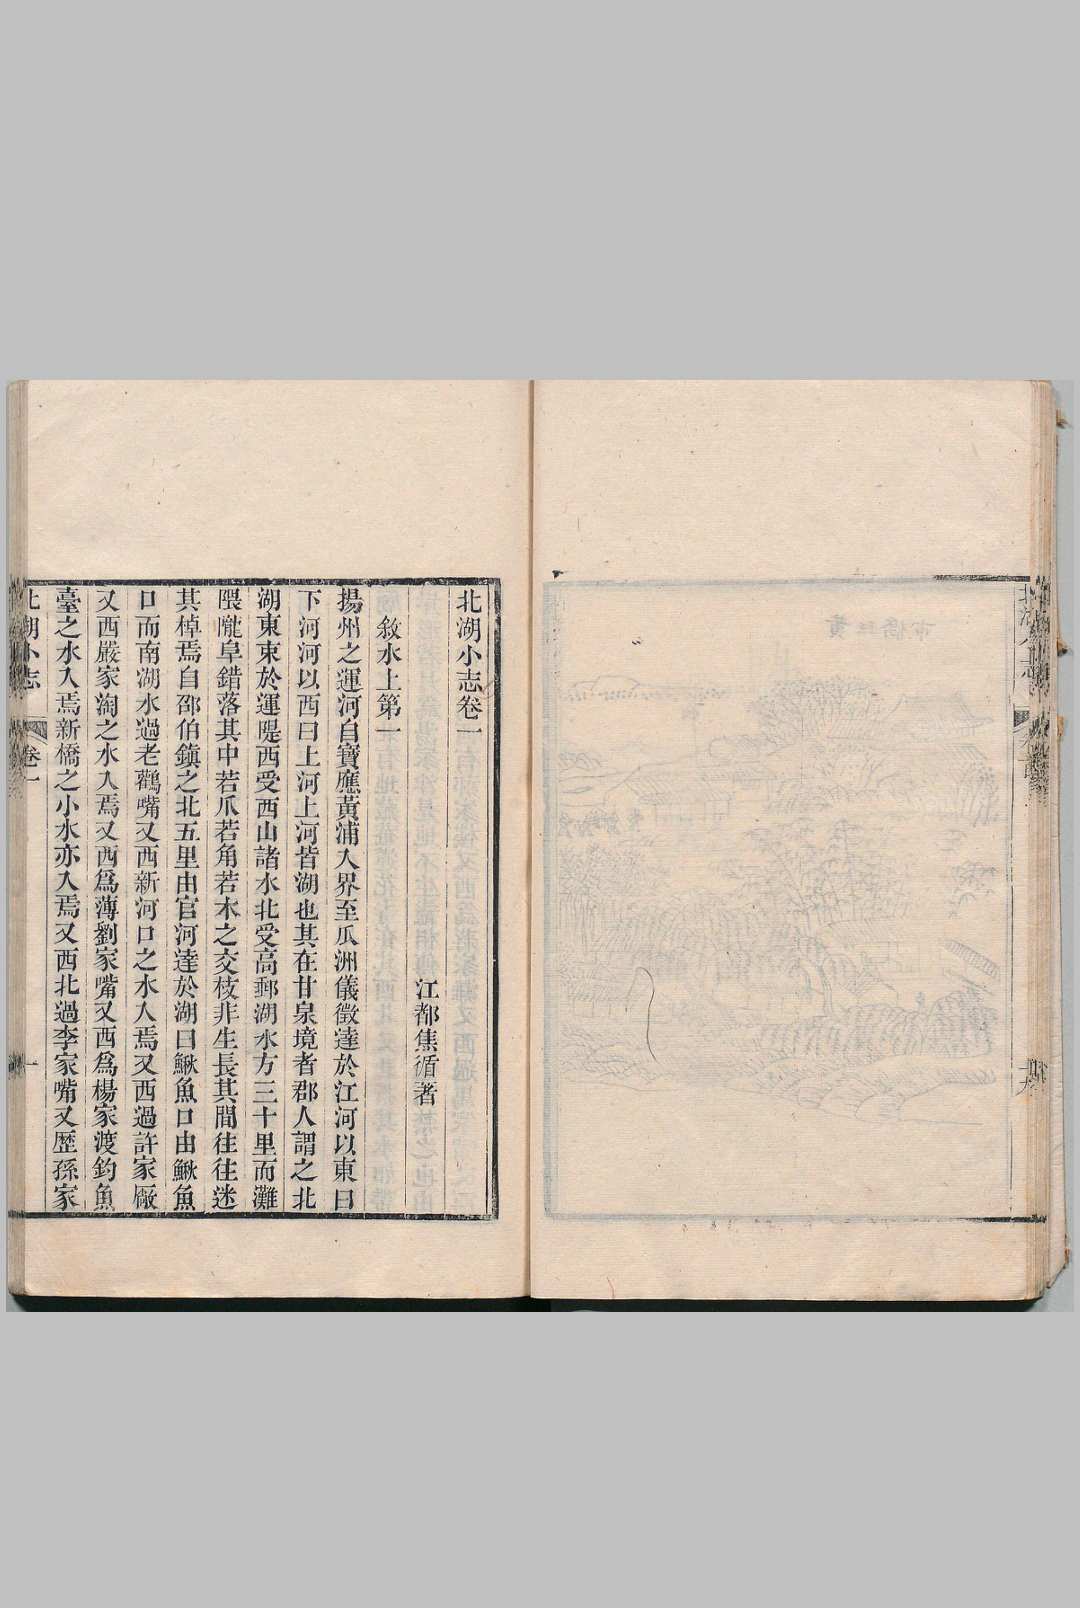 北湖小志卷一
江都焦循著
敘水上第一
揚州之運河自寶應黃浦入界至瓜洲儀徵達於江河以東曰
下河河以西曰上河上河皆湖也其在甘泉境者郡人謂之北
湖東束於運隄西受西山諸水北受高郵湖水方三十里而灘
隈隴阜錯落其中若爪若角若木之交枝非生長其間往往迷
其棹焉自邵伯鎮之北五里由官河達於湖曰鰍魚口由鰍魚
口而南湖水過老鸛嘴又西新河口之水入焉又西過許家廠
又西嚴家澗之水入焉又西爲薄劉家嘴又西爲楊家渡釣魚
臺之水入焉新橋之小水亦入焉又西北過李家嘴又歷孫家
北湖小志 卷一 一